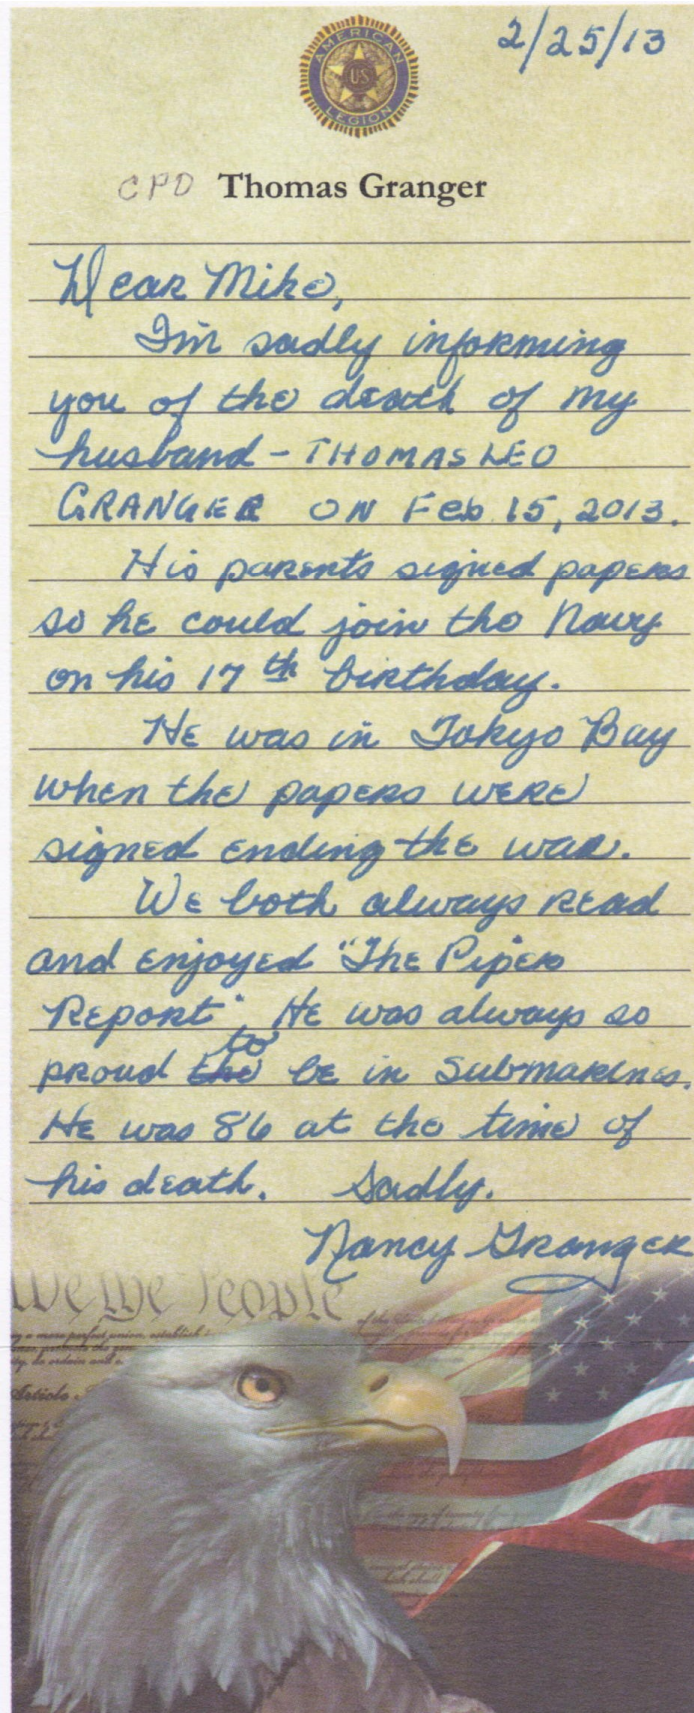 2/25/13
AMERICAN
US
LEGION
CPD Thomas Granger
Dear Mike,
I'm sadly informing
you of the death of my
husband - THOMAS LEO
GRANGER ON Feb. 15, 2013.
His parents signed papers
so he could join the Navy
on his 17th birthday.
He was in Tokyo Bay
when the papers were
signed ending the war.
We both always read
and enjoyed "The Piper
Report". He was always so
to
proud the be in Submarines.
He was 86 at the time of
his death. Sadly.
Nancy Granger
We the People
Article